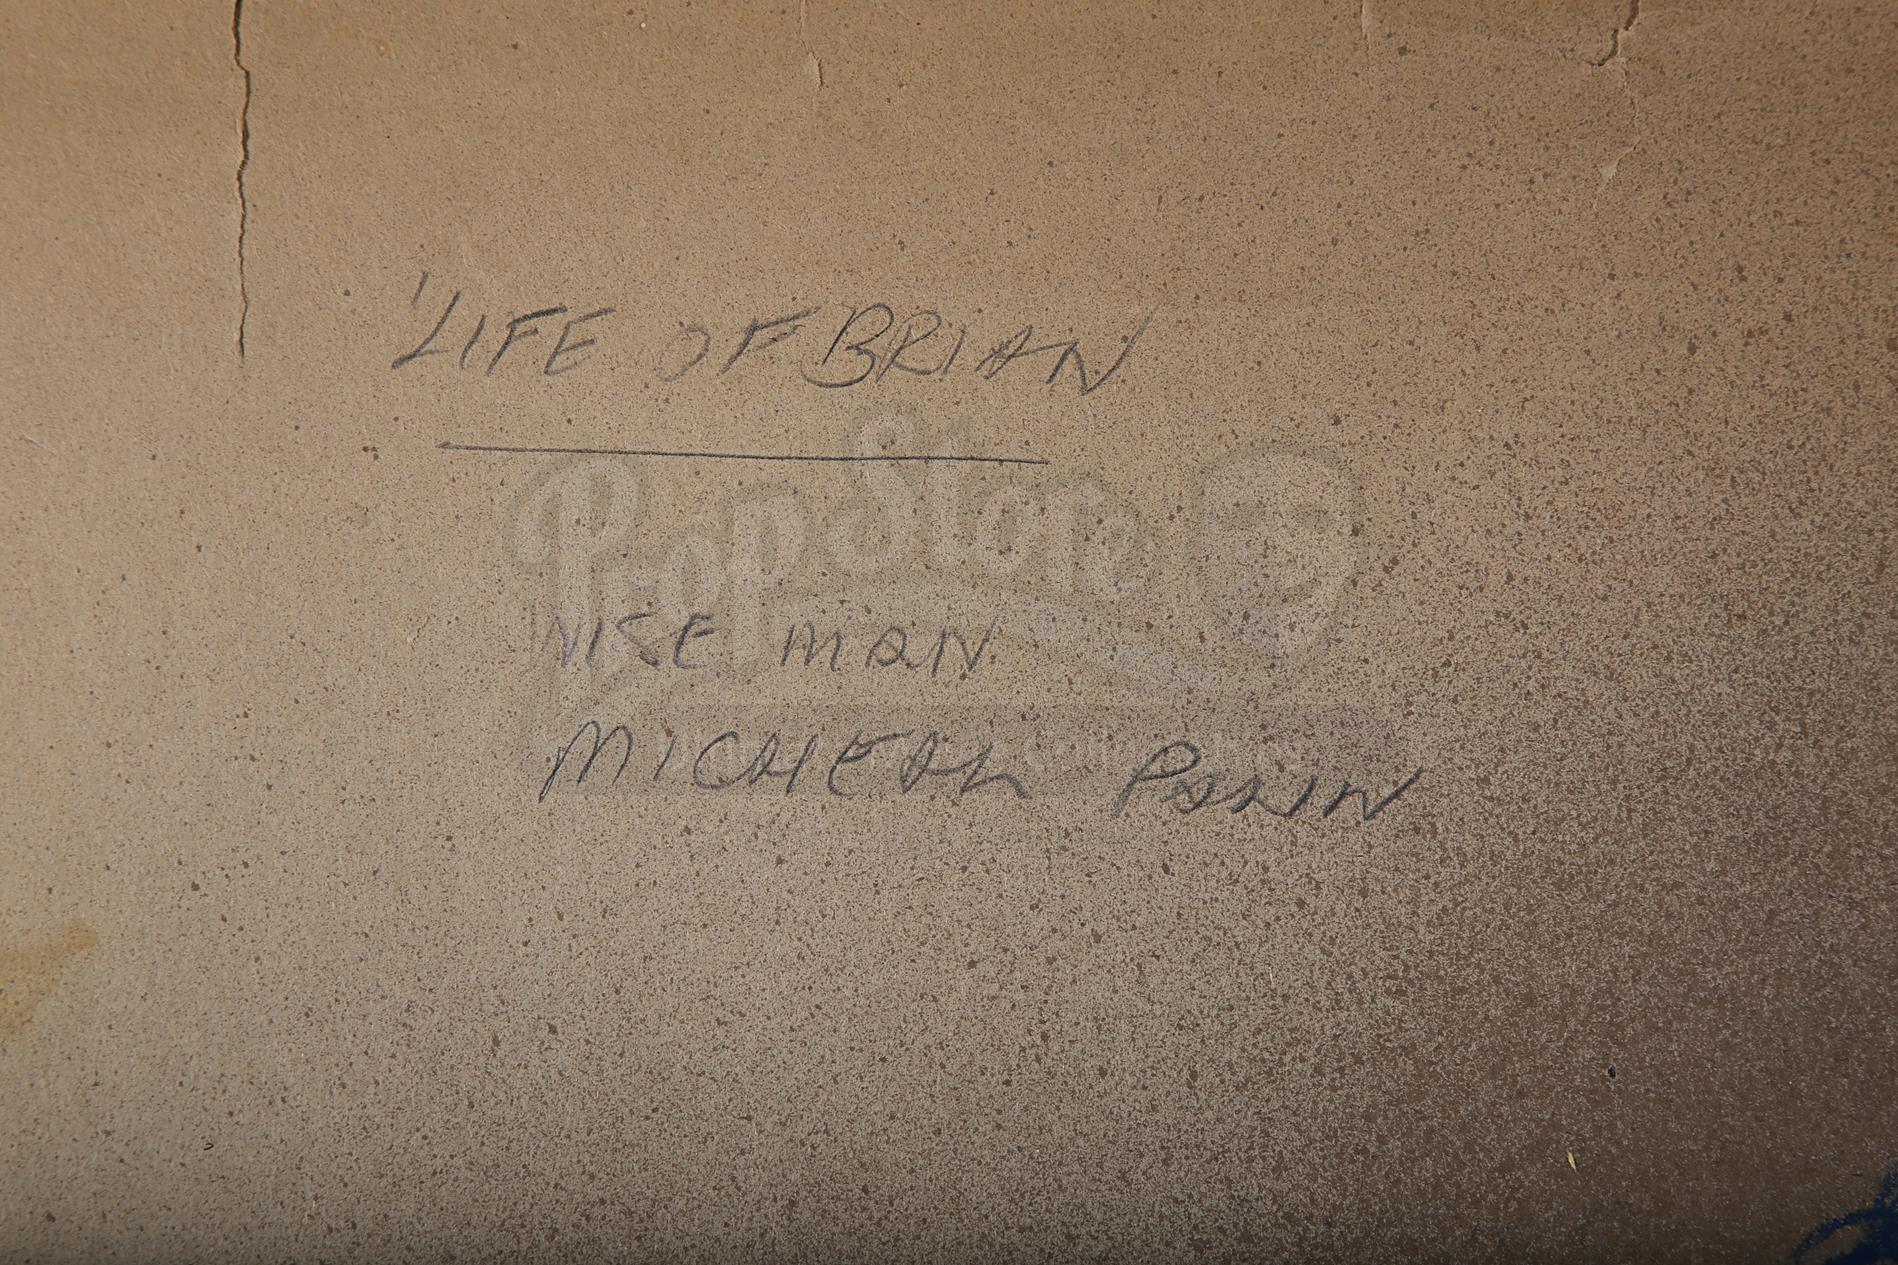 'LIFE OF BRIAN
Prop Store
WISE MAN
MICHEAL PALIN